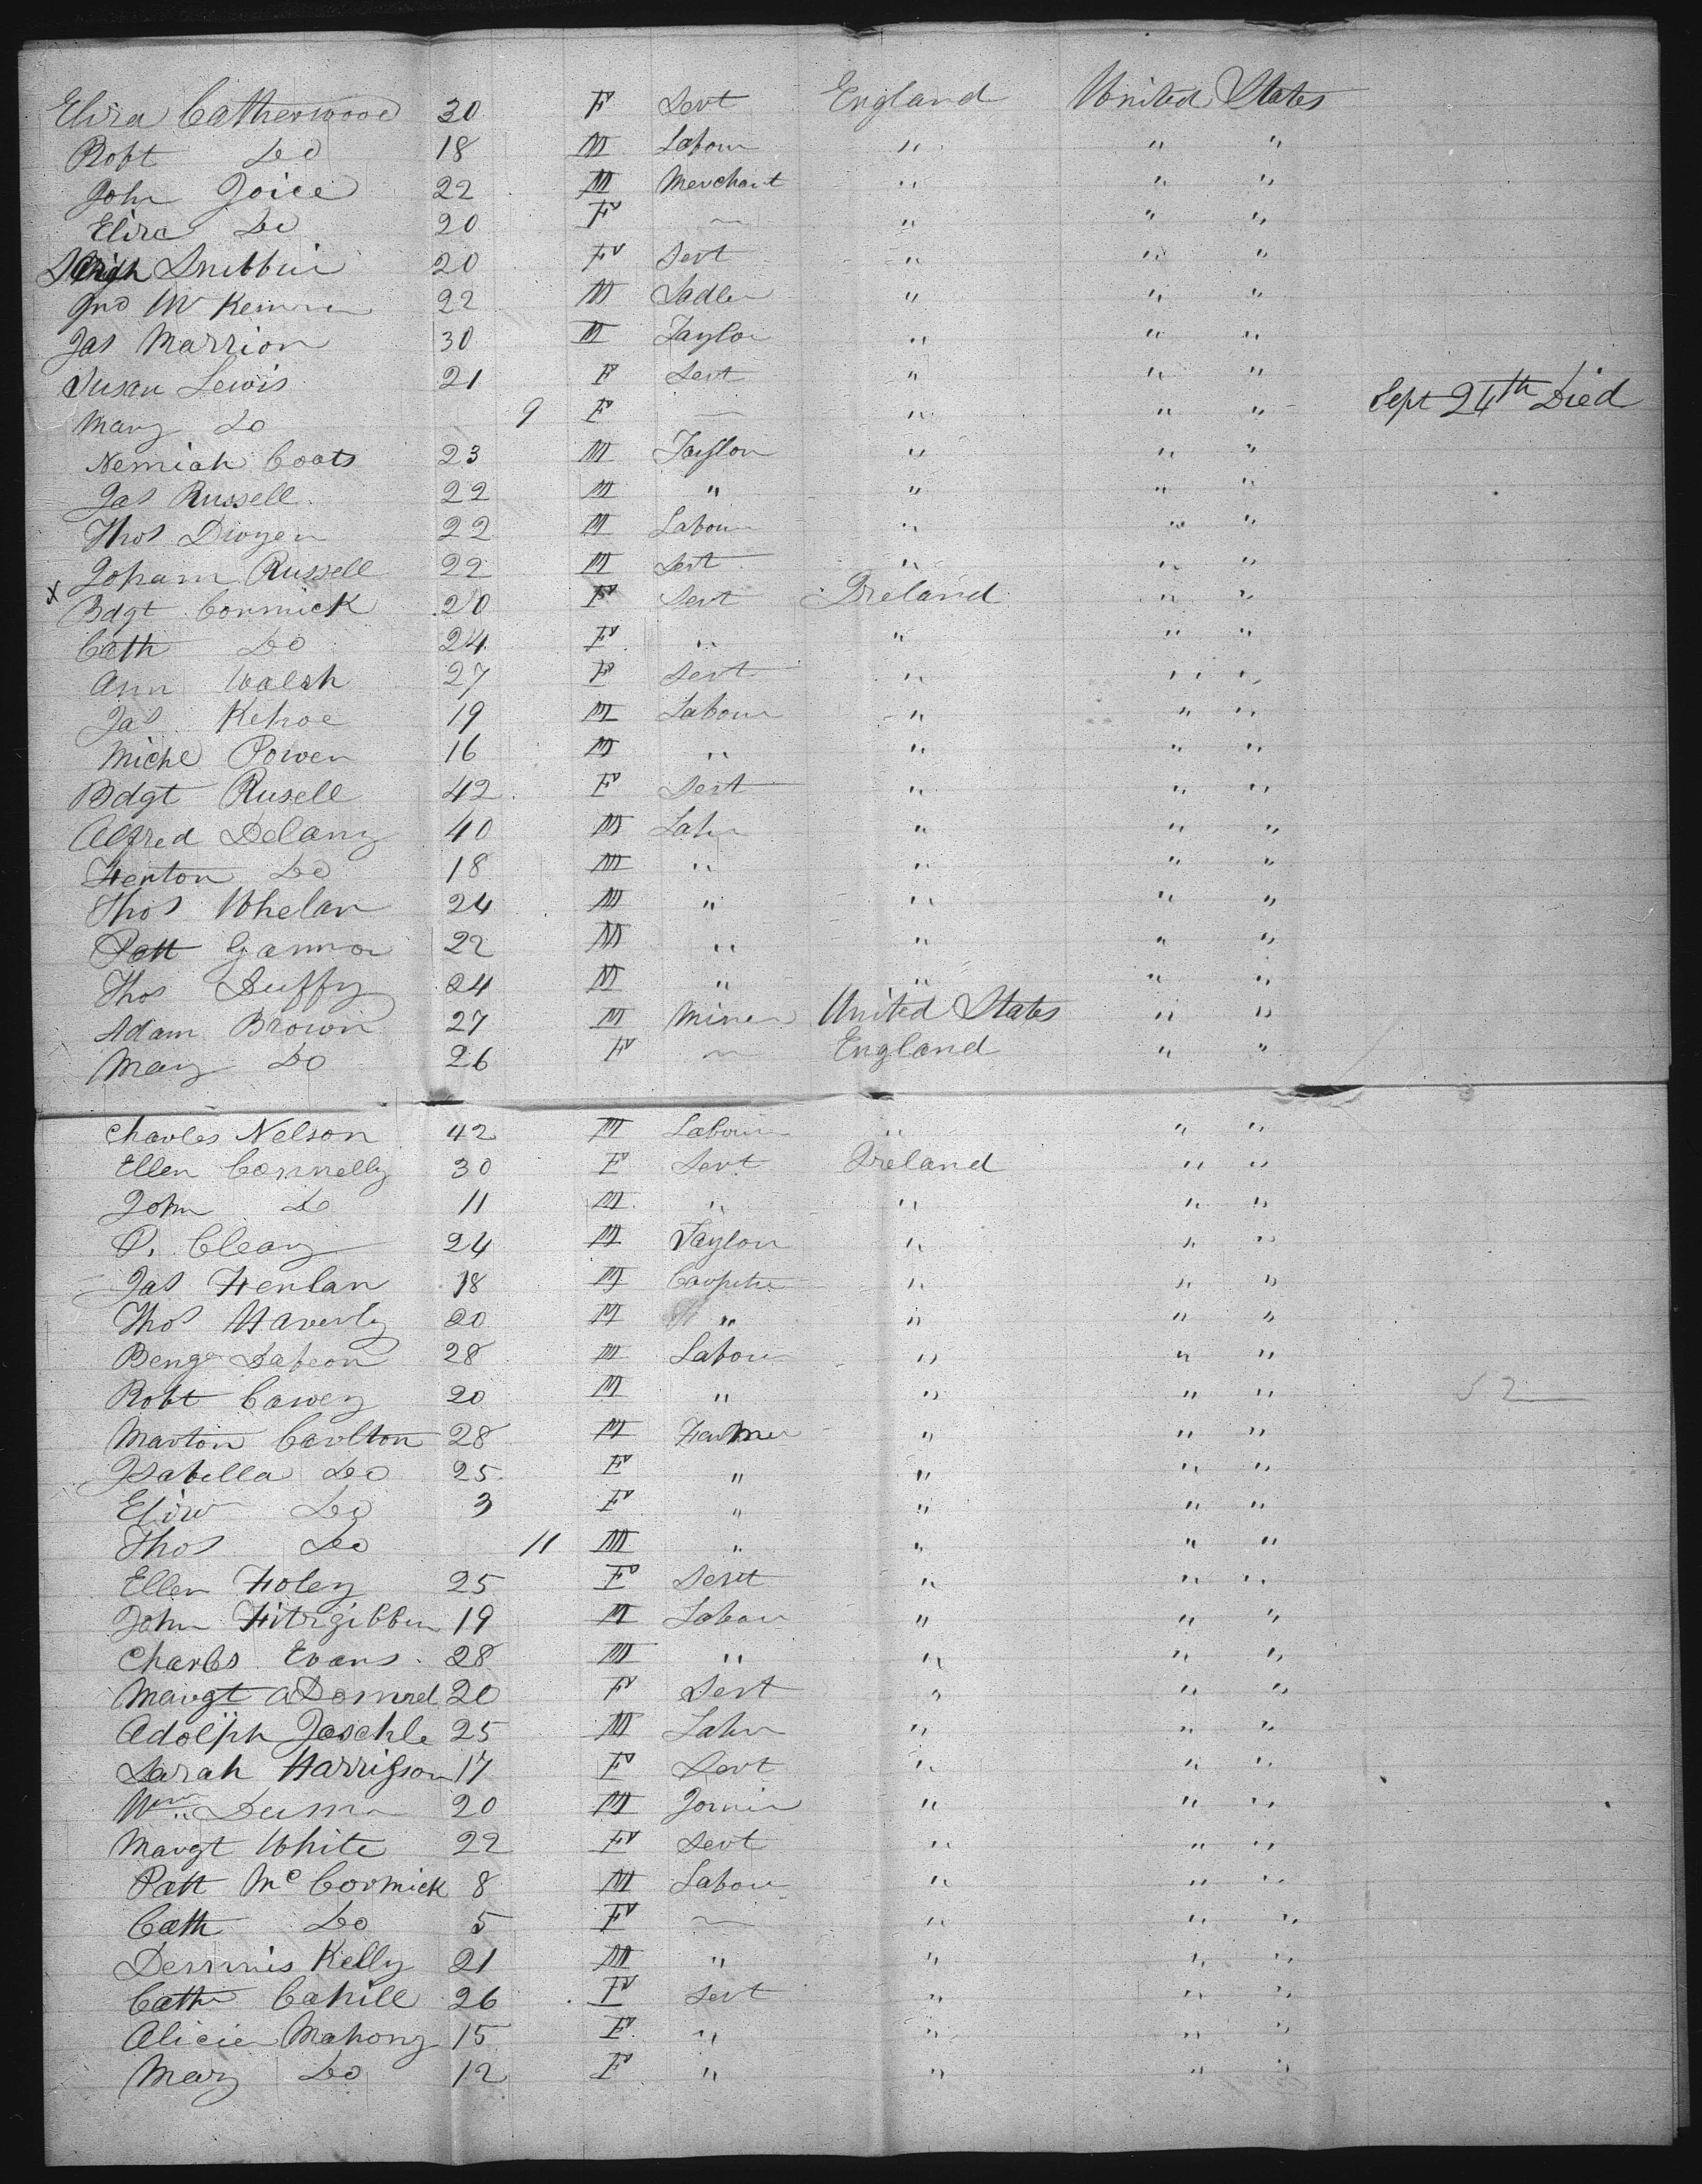 Eliza Catherwood 30 F Servt England United States
Robt Do 18 M Labour " " "
John Joice 22 M Merchant " " "
Eliza Do 20 F — " " "
20 F Servt " " "
Jno 22 M Sadler " " "
Jas Marrion 30 M Taylor " " "
Susan Lewis 21 F Servt " " "
Mary Do 9 F — " " " Sept 24th Died
Nemiah Coats 23 M Taylor " " "
Jas Russell 22 M " " " "
Thos Dwyer 22 M Labour " " "
Russell 22 M Servt " " "
x Bdgt Cormick 20 F Servt Ireland " "
Cath Do 24 F " " " "
Ann Walsh 27 F Servt " " "
Jas Kehoe 19 M Labour " " "
Michl Power 16 M " " " "
Bdgt Rusell 42 F Servt " " "
Alfred Delany 40 M Labr " " "
Fenton Do 18 M " " " "
Thos Whelan 24 M " " " "
Patt Gannon 22 M " " " "
Thos Duffy 24 M " " " "
Adam Brown 27 M Miner United States " "
Mary Do 26 F — England " "
Charles Nelson 42 M Labour " " "
Ellen Connelly 30 F Servt Ireland " "
John Do 11 M " " " "
P. Cleary 24 M Taylor " " "
Jas Fenlan 18 M " " "
Thos Haverty 20 M " " " "
28 M Labour " " "
Robt Cawey 20 M " " " " 52
Marton Carlton 28 M Farmer " " "
Isabella Do 25 F " " " "
Do 3 F " " " "
Thos Do 11 M " " " "
Ellen Foley 25 F Servt " " "
John Fitzgibbon 19 M Labour " " "
Charles Evans 28 M " " " "
Margt 20 F Servt " " "
Adolph Jaschle 25 M Labr " " "
Sarah Harrisson 17 F Servt " " "
Wm 20 M Joiner " " "
Margt White 22 F Servt " " "
Patt McCormick 8 M Labour " " "
Cath Do 5 F — " " "
Dennis Kelly 21 M " " " "
Cath Cahill 26 F Servt " " "
Alicia Mahony 15 F " " " "
Mary Do 12 F " " " "